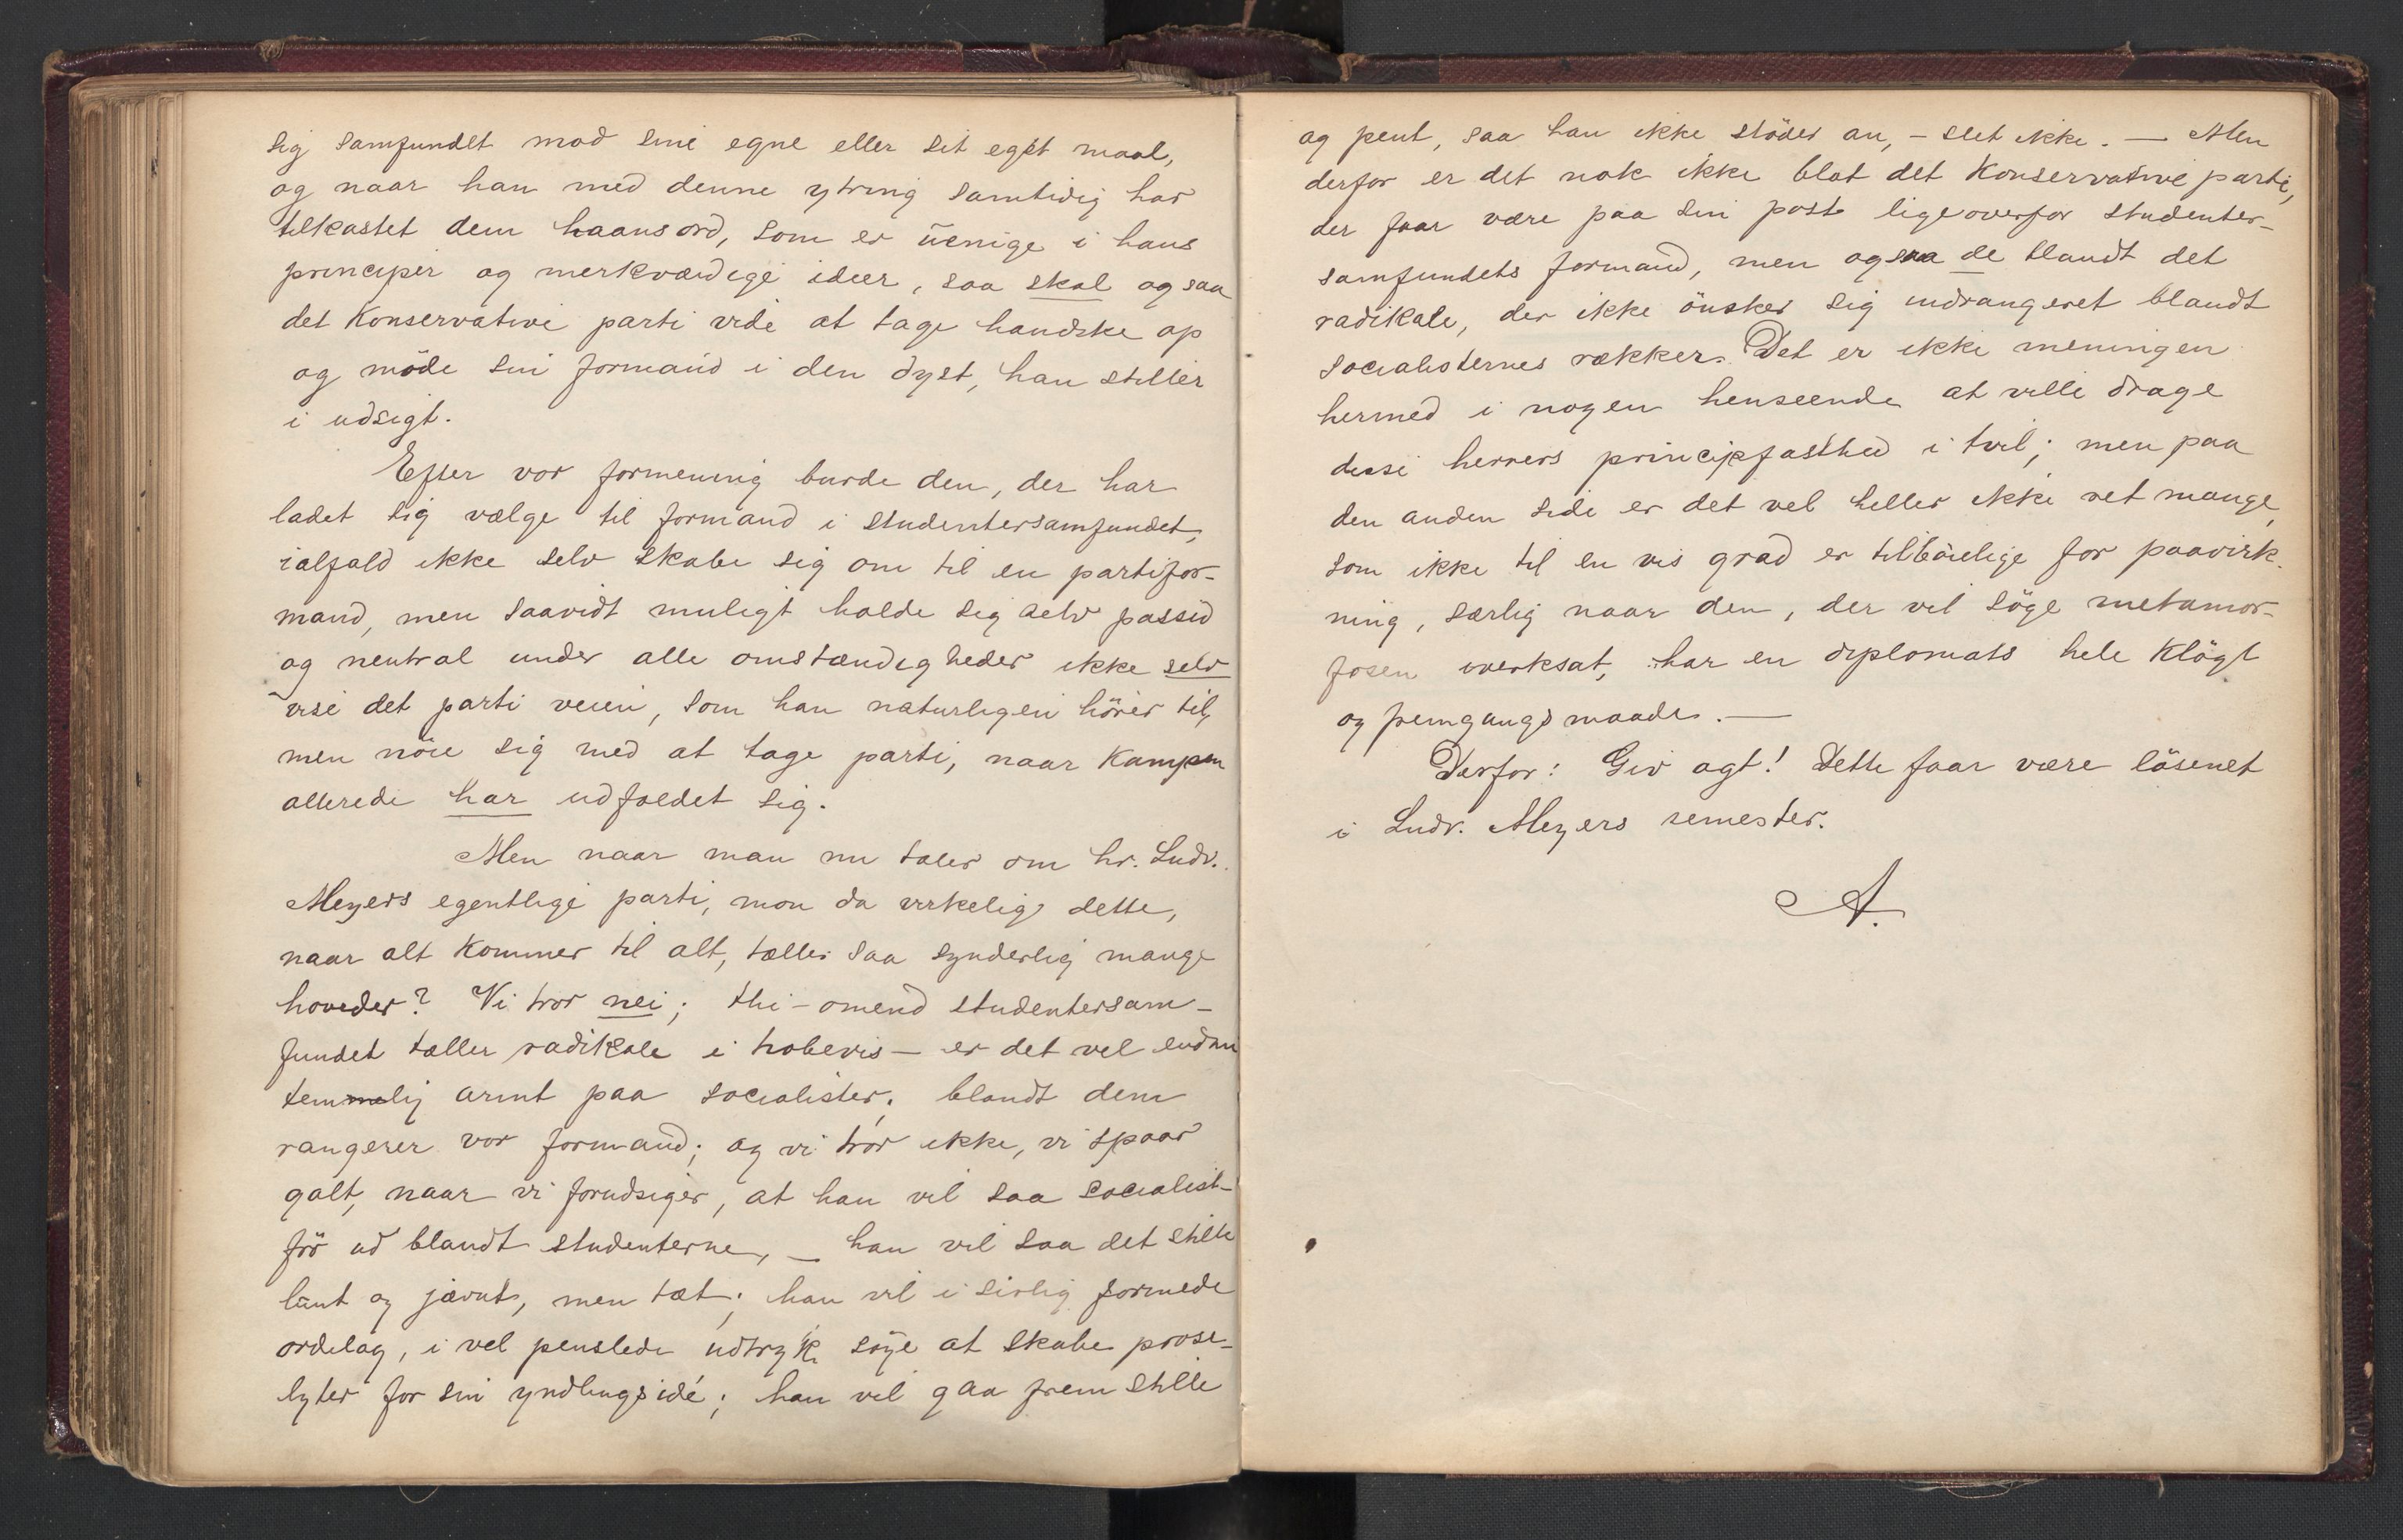 sig samfundet mod sine egne eller sit eget maal,
og naar han med denne ytring samtidig har
tilkastet dem haansord, som er uenige i hans
principer og merkværdige ideer, saa skal ogsaa
det Konservative parti vide at tage handske op
og möde sin formand i den dyst, han stiller
i udsigt.
Efter vor formening burde den, der har
ladet sig vælge til formand i studentersamfundet,
ialfald ikke selv skabe sig om til en partifor-
mand, men saavidt muligt holde sig selv passiv
og neutral under alle omstændigheder ikke selv
vise det parti veien, som han naturligen hörer til,
men nöie sig med at tage parti, naar Kampen
allerede har udfoldet sig.
Men naar man nu taler om hr. Ludv.
Meyers egentlige parti, mon da virkelig dette,
naar alt Kommer til alt, tæller saa synderlig mange
hoveder? Vi tror nei; thi - omend studentersam-
fundet tæller radikale i hobevis - er det vel endnu
temmelig armt paa socialister; blandt dem
rangerer vor formand; og vi tror ikke, vi spaar
galt, naar vi forudsiger, at han vil saa socialist-
frö ud blandt studenterne, - han vil saa det stille
lunt og jævnt, men tæt; han vil i sirlig formede
ordelag, i vel penslede udtryk söge at skabe prose-
lyter for sin yndlingsidé; han vil gaa frem stille
og pent, saa han ikke stöder an, - slet ikke. - Men
derfor er det nok ikke blot det Konservative parti,
der faar være paa sin post ligeoverfor studenter-
samfundets formand, men ogsaa de blandt det
radikale, der ikke önsker sig indrangeret blandt
socialisternes rækker. Det er ikke meningen
hermed i nogen henseende at ville drage
disse herrers principfasthed i tvil; men paa
den anden side er det vel heller ikke ret mange,
som ikke til en vis grad er tilböielige for paavirk-
ning, særlig naar den, der vil söge metamor-
fosen iverksat, har en diplomats hele Klögt
og fremgangsmaade. -
Derfor: Giv agt! Dette faar være lösenet
i Ludv. Meyers semester.
A.